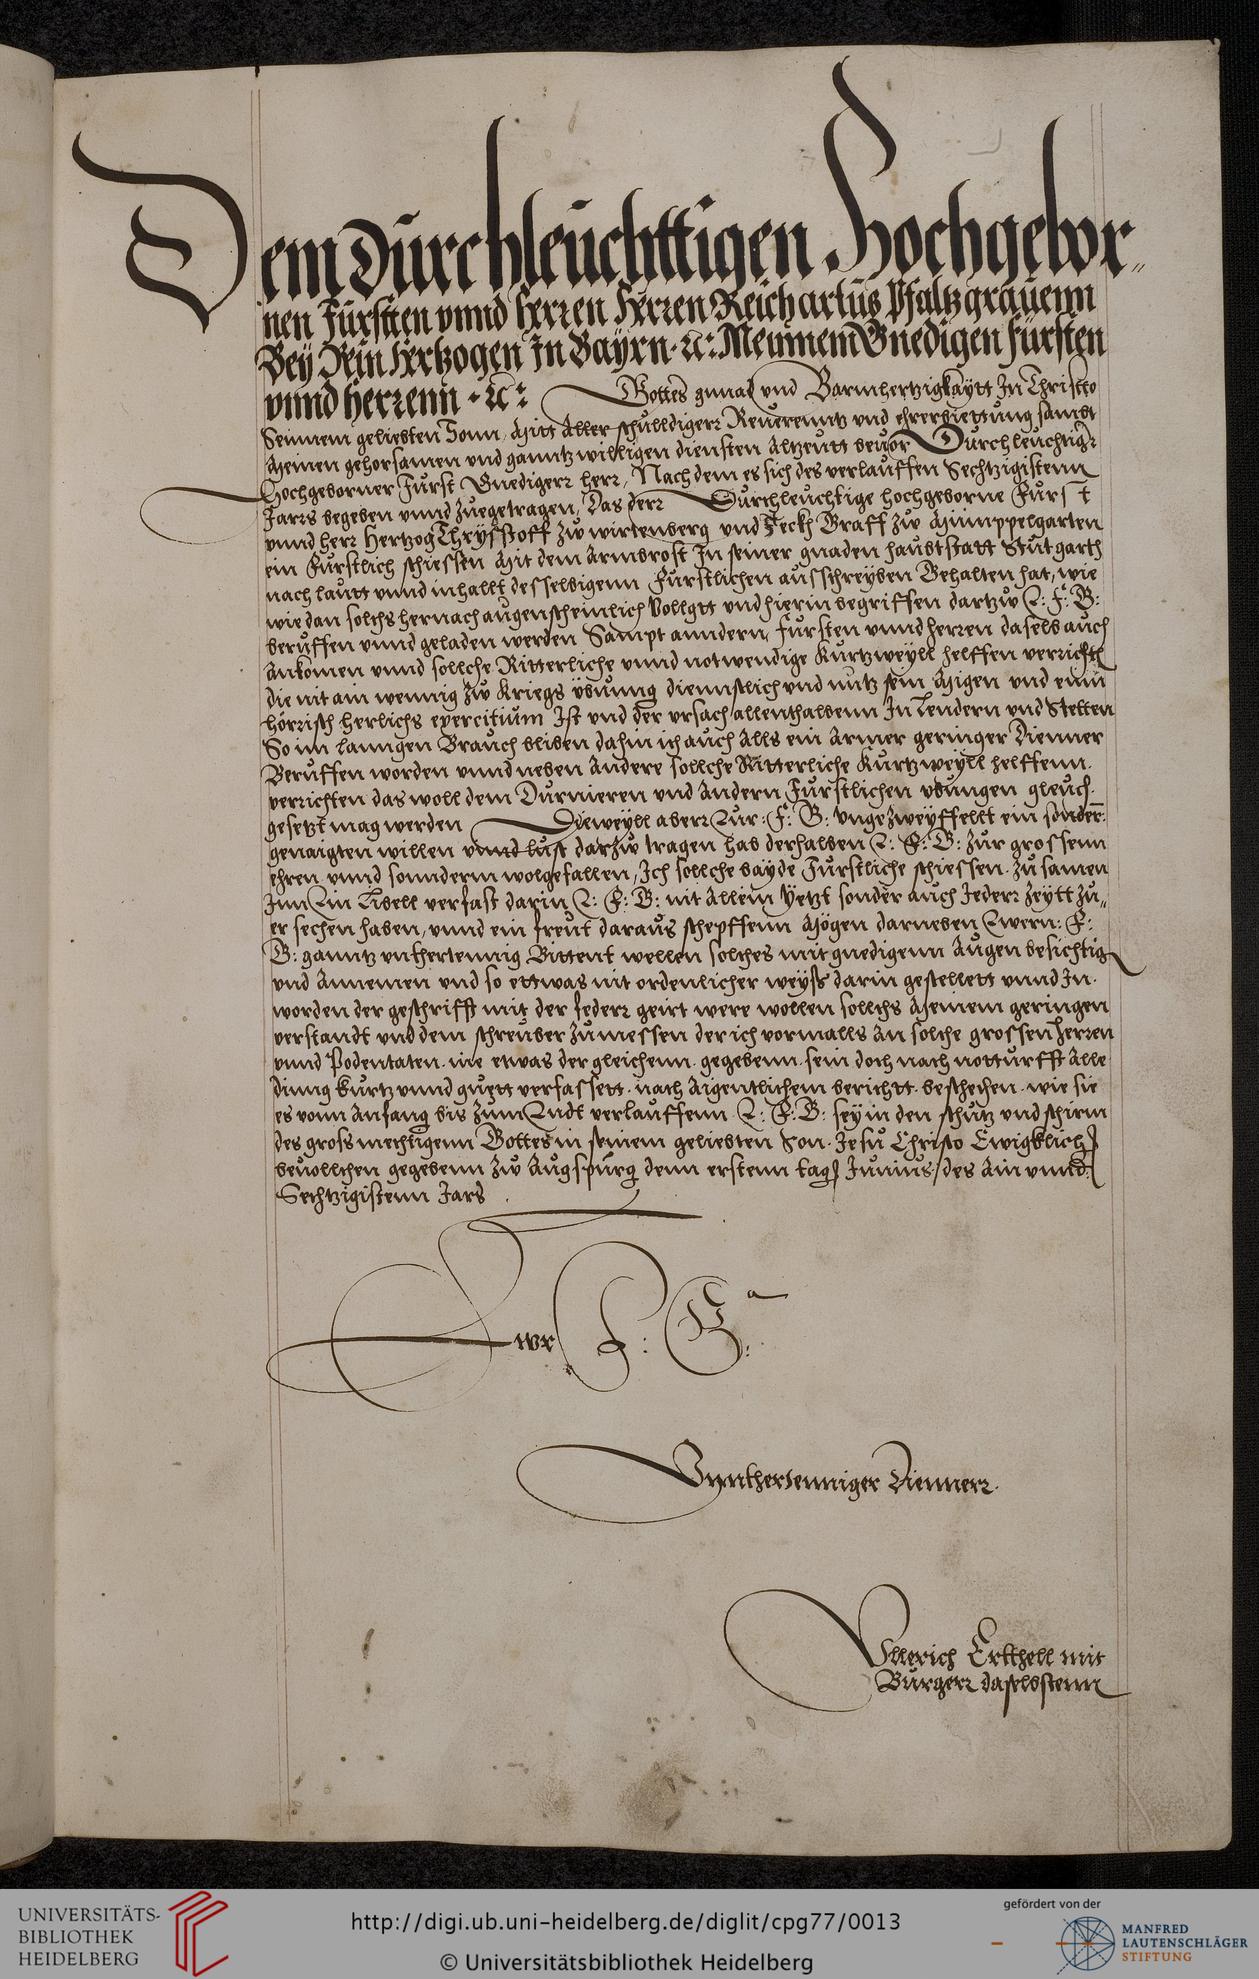 Dem Durchleuchttigen Hochgebor„
nen Fürstten vnnd Herren Herren Reichartus Pfaltzgrauenn
Bey Rein Hertzogen In Bayrn · ꝛc: Meinnem Gnedigen Fürsten
vnnd herrenn · ꝛc: Gottes gnnad vnd Barmhertzigkaytt In Christto
Seinnem geliebten Sonn, Mitt Aller schulldigerr Reuerenntz vnd ehrerbiettung sambt
Meinen gehorsamen vnd ganntz willigen diensten Altzeutt beuor Durchleuchtigr
Hochgeborner Fürst Gnedigerr herr, Nach dem es sich des verlauffen Sechtzigistenn
Jarrs begeben vnnd zuegetragen, Das derr Durchleuchtige hochgeborne Fürst
vnnd herr Hertzog Chrysstoff zw wirtenberg vnd Teckh Graff zw Mümppelgarten
ein Fürstlich schiessen Mit dem Armbrost In seiner gnaden haubtstatt Stutgarth
nach lautt vnnd inhallt desselbigenn Fürstlichen ausschreyben Gehalten hat, wie
wie dan solchs hernach augenscheinlich Vollgtt vnd hierin begriffen dartzw E: F: G:
beruffen vnnd geladen werden Sampt anndern fürsten vnnd herren daselb auch
Ankomen vnnd sollche Ritterliche vnnd notwendige Kurtzweyll helffen verricht
die nit ain wennig zw Kriegs ybunng diennstlich vnd nutz sein Migen vnd einn
hörrisch herlichs exercitium Ist vnd der vrsach allenthalbenn In Lendern vnd Stetten
So inn lanngen Brauch bliben dahin ich auch Alls ein Armer geringer Dienner
Beruffen worden vnnd neben Andere sollche Ritterliche Kurtzweyll helffenn
verrichten das woll dem Durnieren vnd Andern Fürstlichen ybungen gleuch
gesetzt mag werden Dieweyll aberr Eur: F: G: vngezweyffellt ein sonder
genaigten willen vnnd lust darzw tragen hab derhalben E: F: G: zur grossenn
ehren vnnd sonnderm wolgefallen, Ich sollche bayde Fürstliche schiessen zu samen
Inn Ein Libell verfast darin E: F: G: nit Allein Yetzt sonder auch Iederr zeytt zu„
er sechen haben, vnnd ein freut daraus schepffenn Mögen darneben Ewern: F:
G: ganntz vnthertennig Bittent wellen solches mit gnedigenn Augen besichtig
vnd Annemen vnd so ettwas nit ordenlicher weyss darin gestellett vnnd In
worden der geschrifft mit der federr geirt were wollen sollchs Meinem geringen
verstandt vnd dem schreuber zumessen der ich vormalls An solche grossen Herren
vnnd Podentaten nie etwas der gleichenn gegebenn sein doch nach notturfft Alle
dinng kurtz vnnd guett verfassett nach Aigentlichem berichtt beschechen wie sie
es vonn Anfang bis zum Endt verlauffenn E: F: G: sey in den schutz vnd schirm
des grossmechtigenn Gottes in seinem geliebten Son Jesu Christo Ewigklich
beuollchen gegebenn zw Augspurg denn erstenn tag Junius des Ain vnnd
Sechtzigistenn Jars
Ewr F: G:
Vnnthertenniger Diennerr
Vllerich Ertthell mit
Burgerr daselbstenn
UNIVERSITÄTS-
BIBLIOTHEK
HEIDELBERG
http://digi.ub.uni-heidelberg.de/diglit/cpg77/0013
© Universitätsbibliothek Heidelberg
gefördert von der
MANFRED
LAUTENSCHLÄGER
STIFTUNG